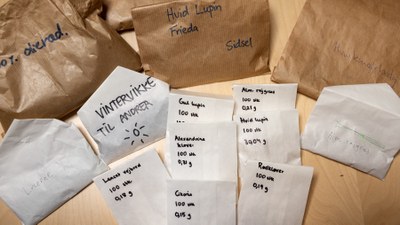 100% olierad.
Hvid Lupin
Frieda
Sidsel
VINTERVIKKE
TIL ANDREA
Gul Lupin
100 stk
...
Alm. rajgræs
100 stk
0,21 g
Alexandrine
kløver
100 stk
0,31 g
Hvid Lupin
100 stk
Rødkløver
100 stk
0,19 g
100 stk
0,18 g
Cikorie
100 stk
0,15 g